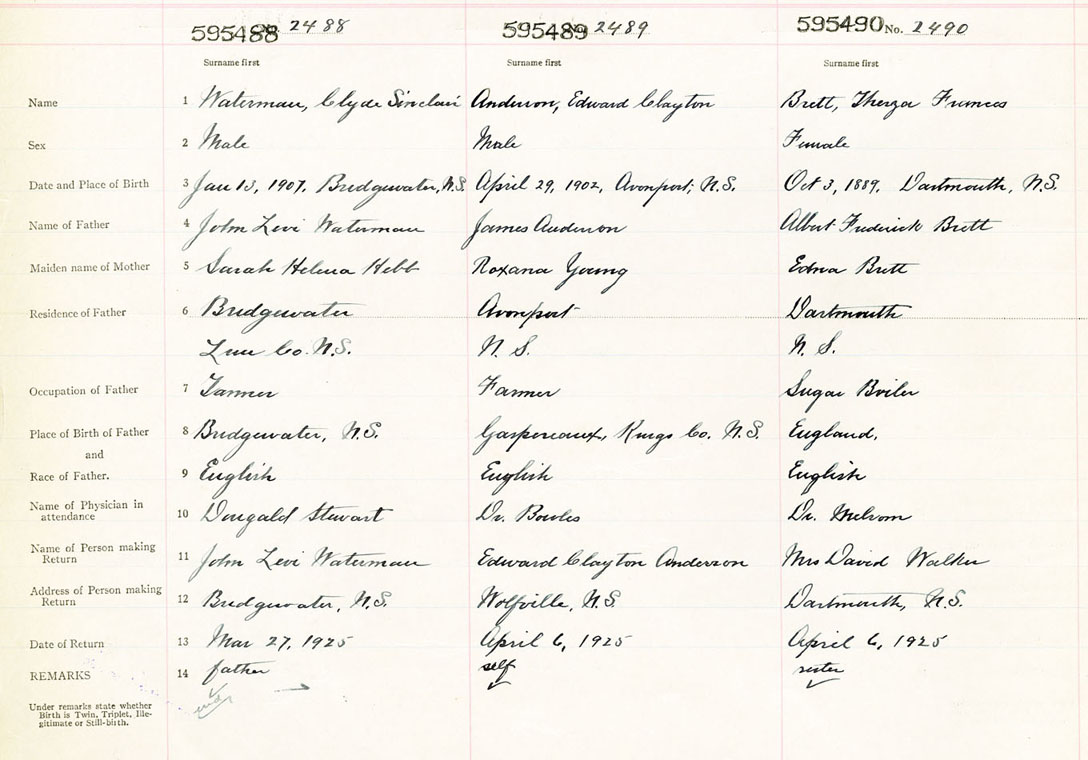 595488 No. 2488 595489 No. 2489 595490 No. 2490
Surname first Surname first Surname first
Name 1 Waterman, Clyde Sinclair Anderson, Edward Clayton Brett, Therza Frances
Sex 2 Male Male Female
Date and Place of Birth 3 Jan 13, 1907, Bridgewater, N.S. April 29, 1902, Avonport, N.S. Oct 3, 1889, Dartmouth, N.S.
Name of Father 4 John Levi Waterman James Anderson Albert Frederick Brett
Maiden name of Mother 5 Sarah Helena Hebb Roxana Young Edna Brett
Residence of Father 6 Bridgewater Avonport Dartmouth
Lun Co. N.S. N. S. N. S.
Occupation of Father 7 Tanner Farmer Sugar Boiler
Place of Birth of Father 8 Bridgewater, N.S. Gaspereaux, Kings Co. N.S. England,
and
Race of Father. 9 English English English
Name of Physician in
attendance 10 Dougald Stewart Dr. Bowles Dr.
Name of Person making
Return 11 John Levi Waterman Edward Clayton Anderson Mrs David Walker
Address of Person making
Return 12 Bridgewater, N.S. Wolfville, N.S. Dartmouth, N.S.
Date of Return 13 Mar 27, 1925 April 6, 1925 April 6, 1925
REMARKS 14 father self sister
Under remarks state whether
Birth is Twin, Triplet, Ille-
gitimate or Still-birth.